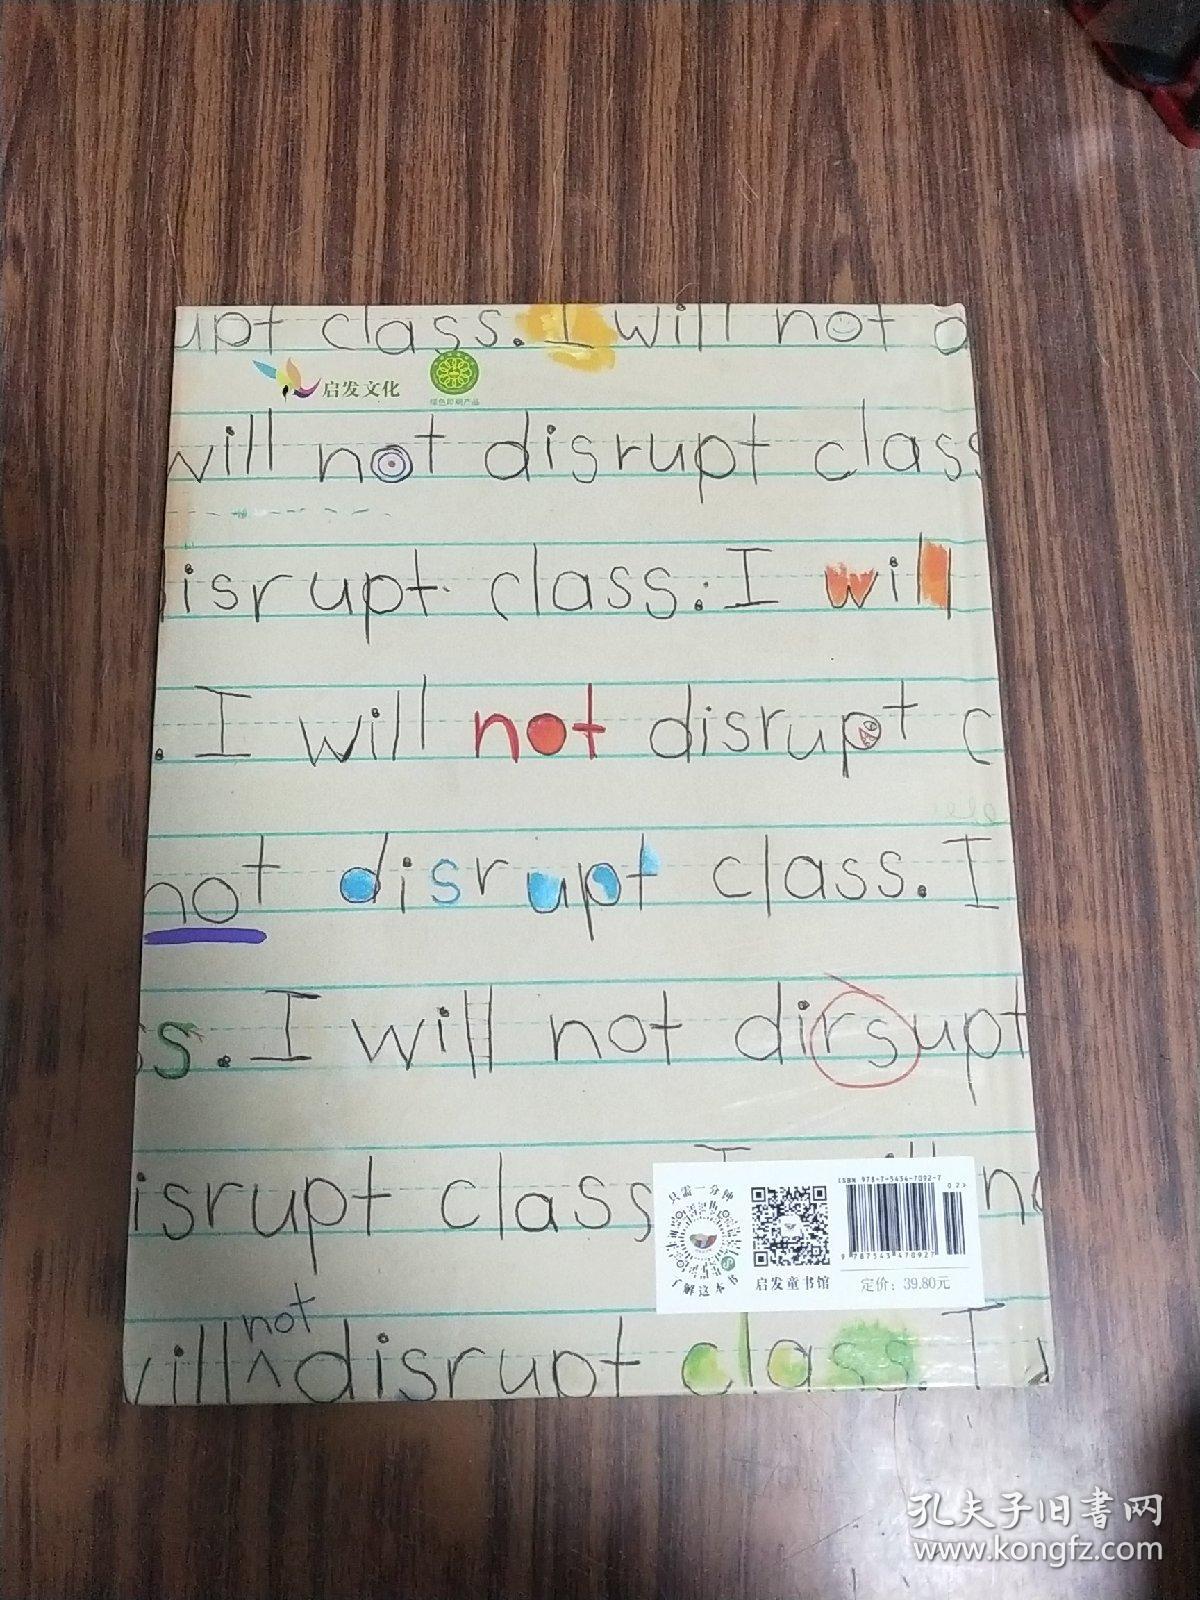 upt class. I will not d
启发文化
绿色印刷产品
will not disrupt class
isrupt class. I will
. I will not disrupt c
not disrupt class. I
ss. I will not dirsupt
isrupt class. I will no
只需一分钟
了解这本书
启发童书馆
ISBN 978-7-5434-7092-7
02>
9 787543 470927
定价：39.80元
not
will ^ disrupt class. I w
孔夫子旧书网
www.kongfz.com